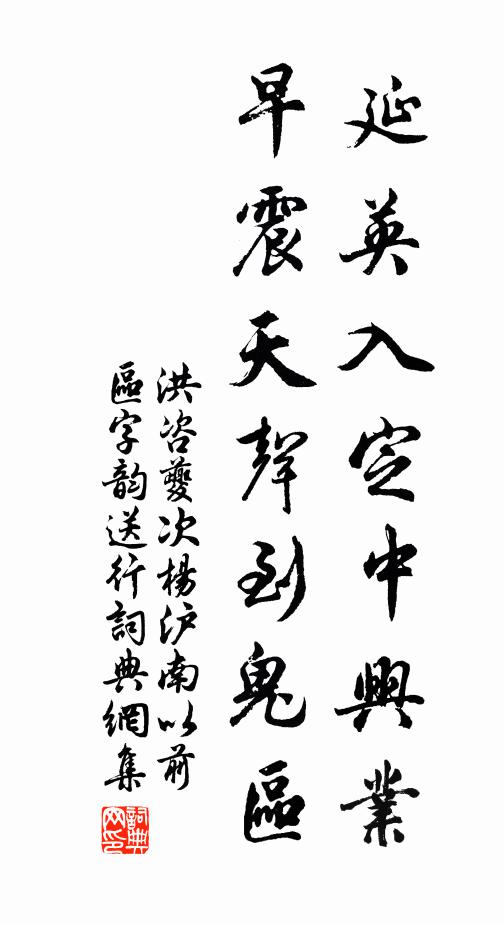 延英入定中興業
早震天聲到鬼區
洪咨夔次楊沪南以前
區字韵送行詞典網集
詞典
网印